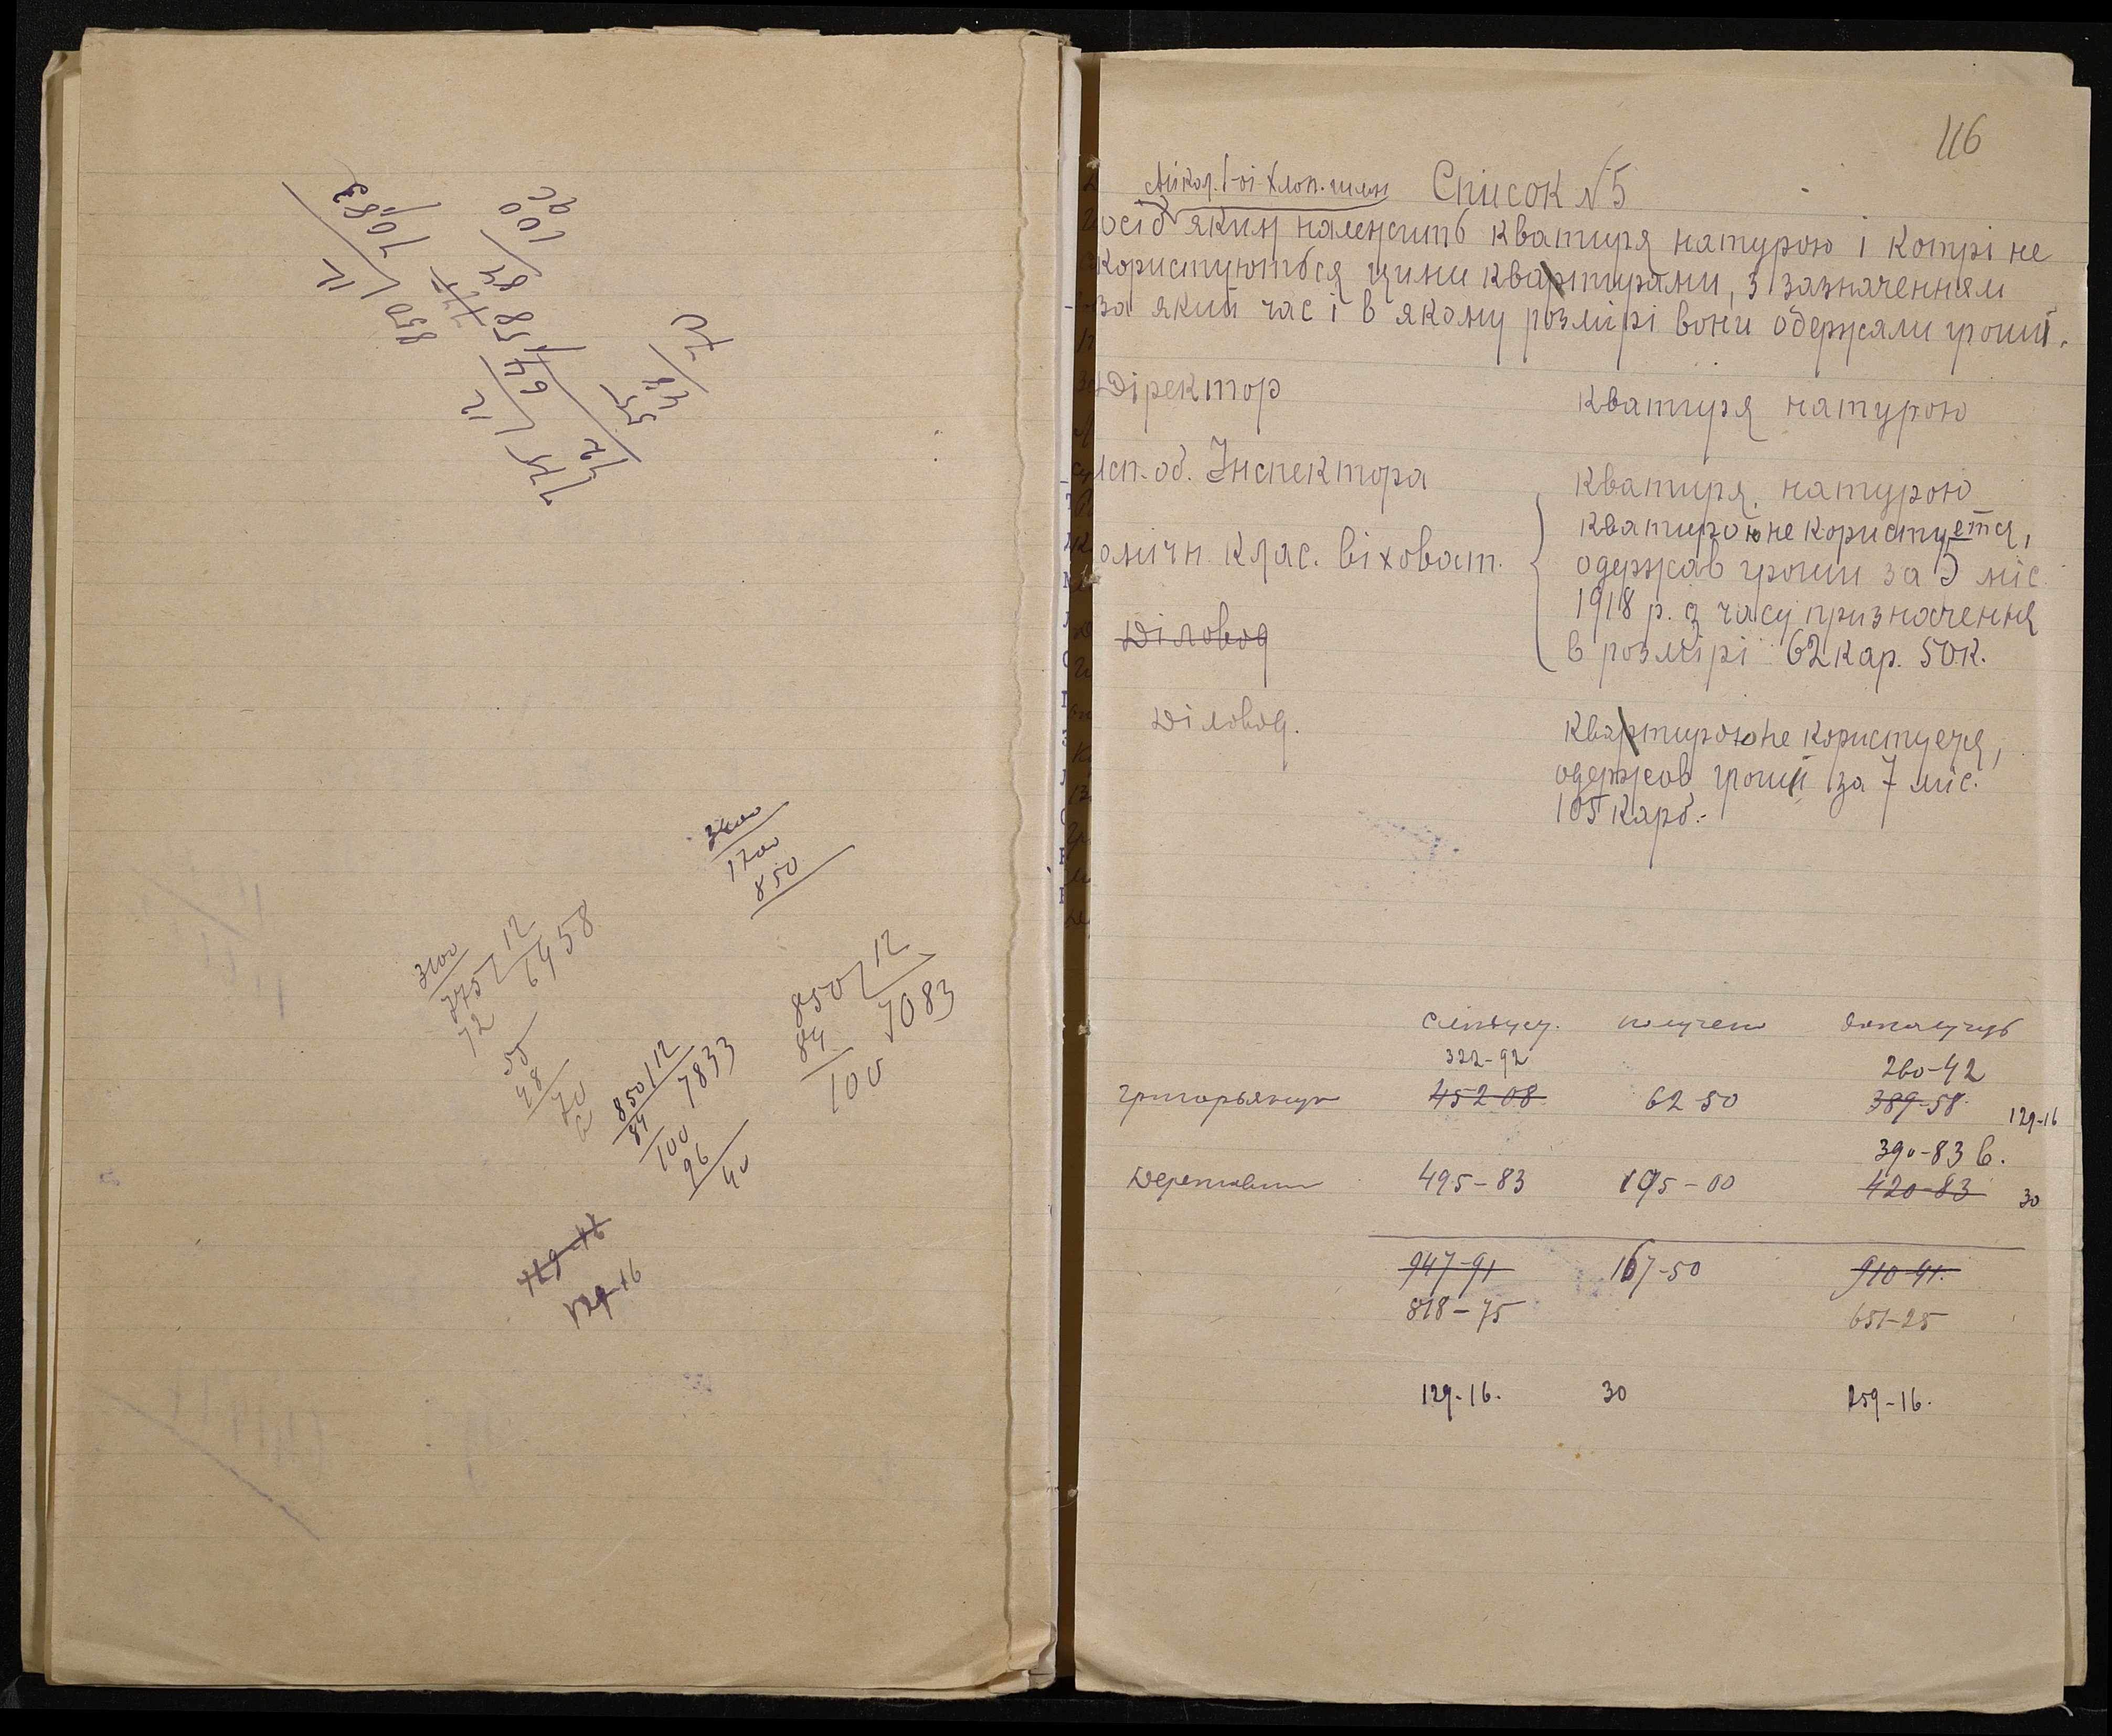 7083
850
12
100
84
64
12
775
72
55
70
3400
1700
850
3100
775 12
72 6458
55
48
70
850 12
84 7083
100
850 12
84 7833
100
96
40
129-16
129-16
116
Микол. 1-ої хлоп. гімн. Список №5
осіб яким належить кватиря натурою і котрі не
користуються цими квартирами, з зазначенням
за який час і в якому розмірі вони одержали гроші.
Діректор кватиря натурою
Ісп. об. Інспектора кватиря натурою
Помічн. клас. віховат. кватирою не користуется,
одержав гроши за 5 міс.
1918 р. з часу призначення
в розмірі 62 кар. 50 к.
Діловод
Діловод. квартирою не користуеця,
одержав гроши за 7 міс.
105 карб.-
следует. получено
322-92 260-42
452-08 62 50 389-58 129-16
390-83 в.
495-83 105-00 420-83 30
947-91 167-50 910-41
818-75 651-25
129-16. 30 159-16.